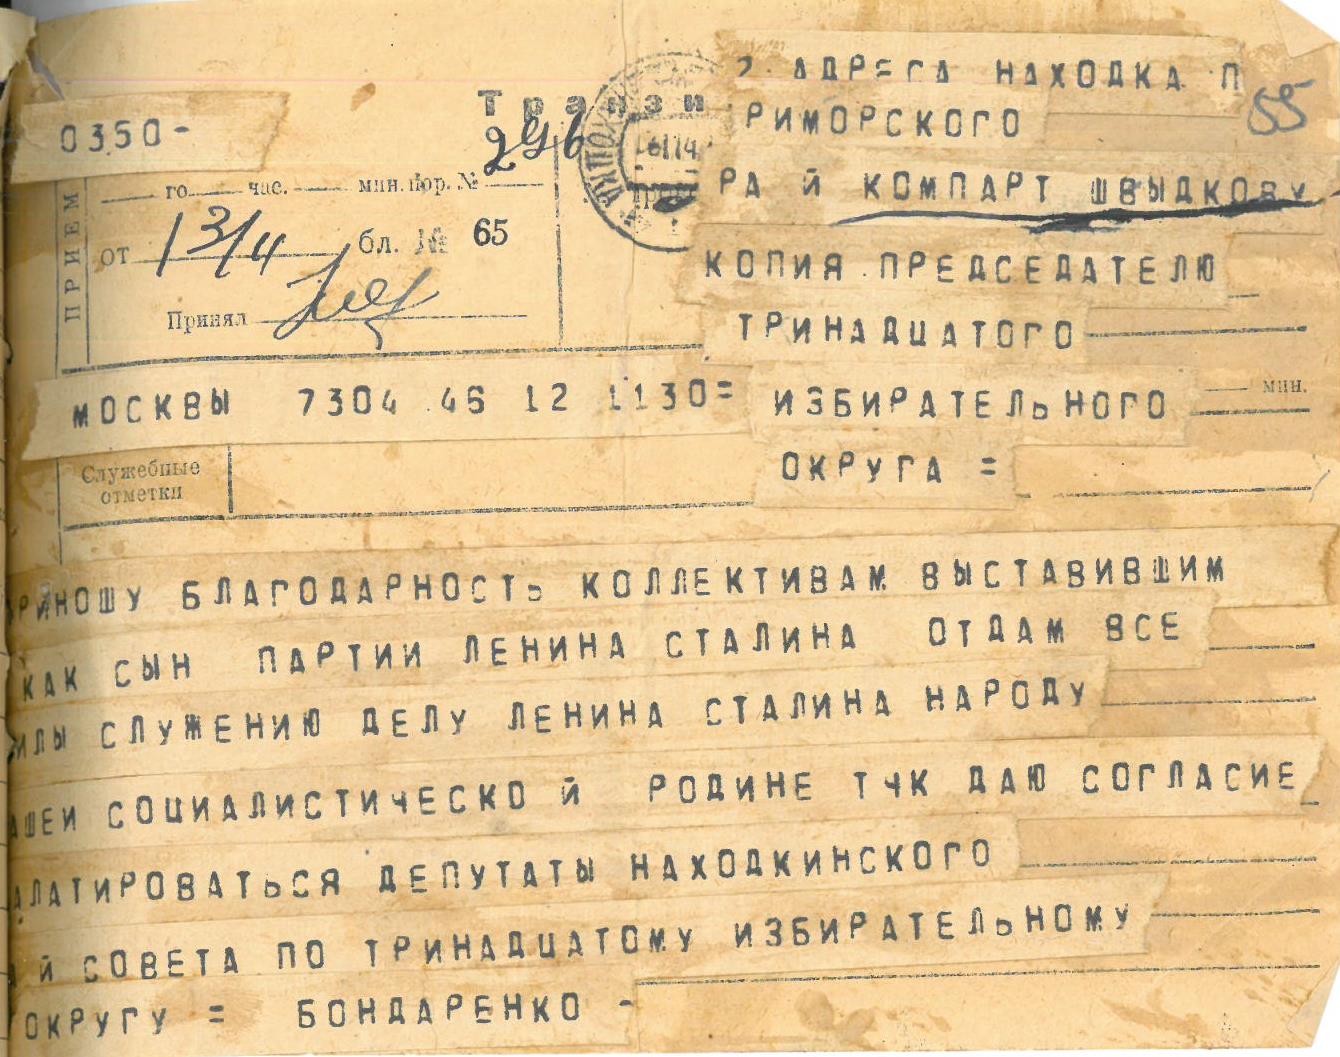 Транзи
2 АДРЕГА НАХОДКА П
55
0350-
296
РИМОРСКОГО
го час. мин. Пор. №
ПРИЕМ
РА Й КОМПАРТ ШВЫДКОВУ
от 13/4 бл. № 65
КОПИЯ ПРЕДСЕДАТЕЛЮ
Принял
ТРИНАДЦАТОГО
МОСКВЫ 7304 46 12 1130=
мин.
ИЗБИРАТЕЛЬНОГО
Служебные
отметки
ОКРУГА =
РИНОШУ БЛАГОДАРНОСТЬ КОЛЛЕКТИВАМ ВЫСТАВИВШИМ
КАК СЫН ПАРТИИ ЛЕНИНА СТАЛИНА ОТДАМ ВСЕ
ИЛЫ СЛУЖЕНИЮ ДЕЛУ ЛЕНИНА СТАЛИНА НАРОДУ
АШЕИ СОЦИАЛИСТИЧЕСКО Й РОДИНЕ ТЧК ДАЮ СОГЛАСИЕ
АЛАТИРОВАТЬСЯ ДЕПУТАТЫ НАХОДКИНСКОГО
А Й СОВЕТА ПО ТРИНАДЦАТОМУ ИЗБИРАТЕЛЬНОМУ
ОКРУГУ = БОНДАРЕНКО -